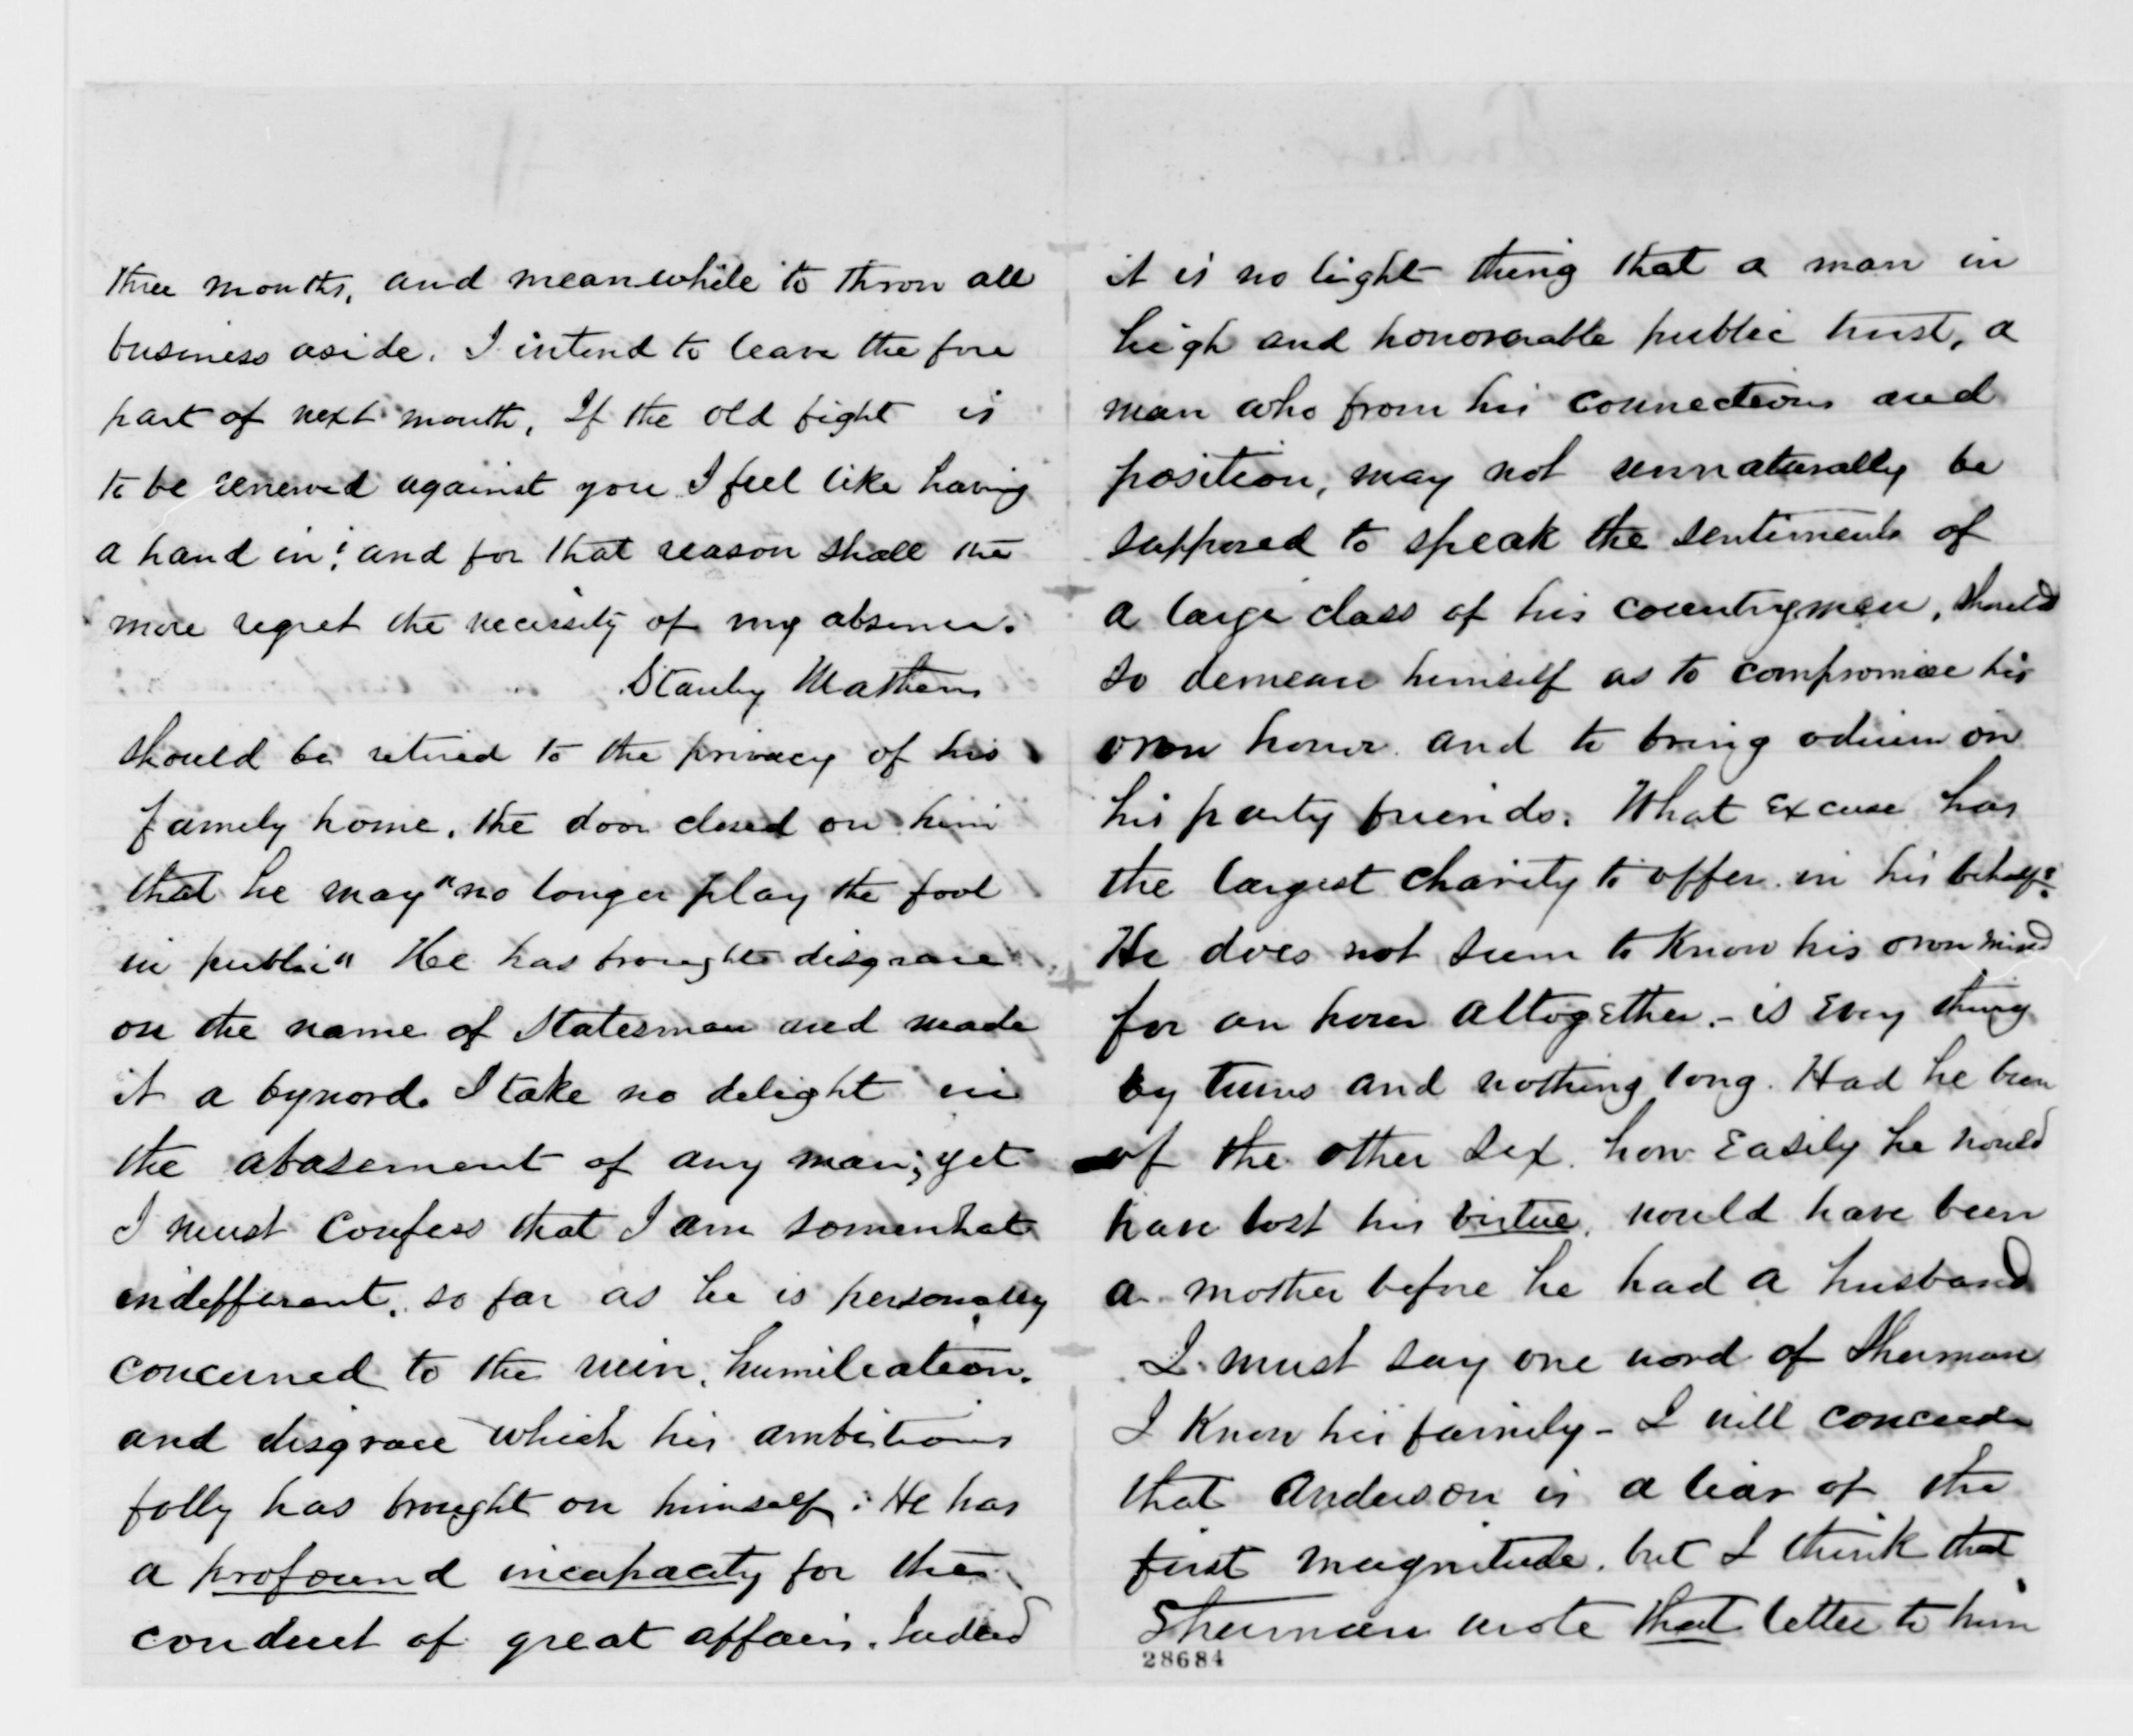 three months, and meanwhile to throw all
business aside. I intend to leave the fore
part of next month. If the old fight is
to be renewed against you I feel like having
a hand in; and for that reason shall the
more regret the necessity of my absence.
Stanley Mathews
should be retired to the privacy of his
family home, the door closed on him
that he may "no longer play the fool
in public" He has brought disgrace
on the name of Statesman and made
it a byword. I take no delight in
the abasement of any man; yet
I must confess that I am somewhat
indefferent, so far as he is personally
concerned to the ruin, humileation,
and disgrace which his ambitious
folly has brought on himself. He has
a profound incapacity for the
conduct of great affairs. Indeed
it is no light thing that a man in
high and honorable public trust, a
man who from his connections and
position, may not unnaturally be
supposed to speak the sentiments of
a large class of his countrymen, should
so demean himself as to compromise his
own honor and to bring odium on
his party friends. What excuse has
the largest charity to offer in his behalf?
He does not seem to know his own mind
for an hour altogether. - is every thing
by turns and nothing long. Had he been
of the other sex, how easily he would
have lost his virtue, would have been
a mother before he had a husband
I must say one word of Sherman
I know his family - I will concede
that Anderson is a liar of the
first magnitude, but I think that
Sherman wrote that letter to him
28684